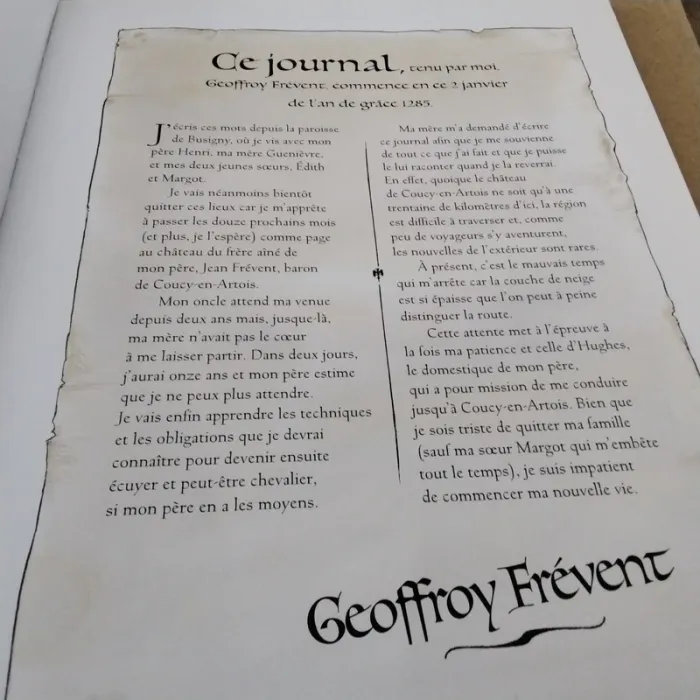 Ce journal, tenu par moi,
Geoffroy Frévent, commence en ce 2 janvier
de l'an de grâce 1285.
J'écris ces mots depuis la paroisse
de Busigny, où je vis avec mon
père Henri, ma mère Guenièvre,
et mes deux jeunes sœurs, Édith
et Margot.
Je vais néanmoins bientôt
quitter ces lieux car je m'apprête
à passer les douze prochains mois
(et plus, je l'espère) comme page
au château du frère aîné de
mon père, Jean Frévent, baron
de Coucy-en-Artois.
Mon oncle attend ma venue
depuis deux ans mais, jusque-là,
ma mère n'avait pas le cœur
à me laisser partir. Dans deux jours,
j'aurai onze ans et mon père estime
que je ne peux plus attendre.
Je vais enfin apprendre les techniques
et les obligations que je devrai
connaître pour devenir ensuite
écuyer et peut-être chevalier,
si mon père en a les moyens.
Ma mère m'a demandé d'écrire
ce journal afin que je me souvienne
de tout ce que j'ai fait et que je puisse
le lui raconter quand je la reverrai.
En effet, quoique le château
de Coucy-en-Artois ne soit qu'à une
trentaine de kilomètres d'ici, la région
est difficile à traverser et, comme
peu de voyageurs s'y aventurent,
les nouvelles de l'extérieur sont rares.
À présent, c'est le mauvais temps
qui m'arrête car la couche de neige
est si épaisse que l'on peut à peine
distinguer la route.
Cette attente met à l'épreuve à
la fois ma patience et celle d'Hughes,
le domestique de mon père,
qui a pour mission de me conduire
jusqu'à Coucy-en-Artois. Bien que
je sois triste de quitter ma famille
(sauf ma sœur Margot qui m'embête
tout le temps), je suis impatient
de commencer ma nouvelle vie.
Geoffroy Frévent